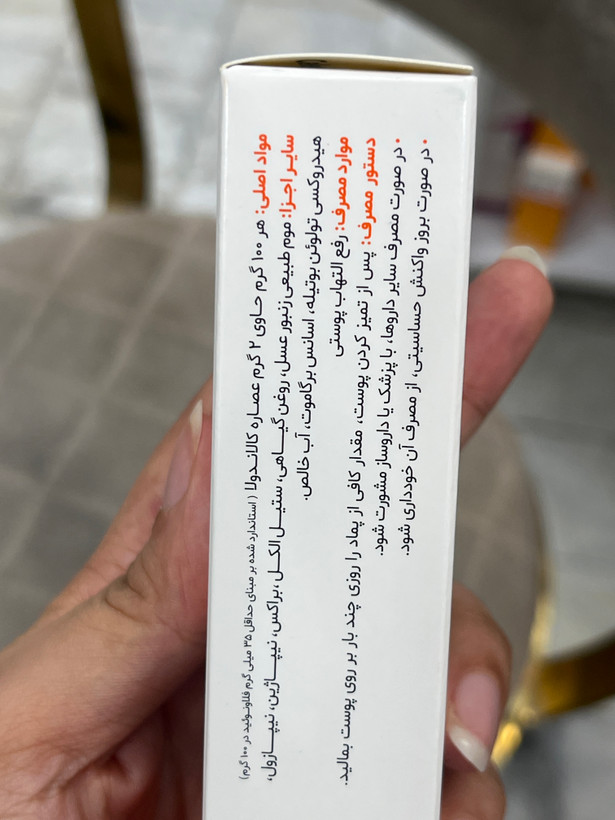 مواد اصلی: هر ۱۰۰ گرم حاوی ۲ گرم عصاره کالاندولا (استاندارد شده بر مبنای حداقل ۳۵ میلی گرم فلاونوئید در ۱۰۰ گرم)
سایر اجزا: موم طبیعی زنبور عسل، روغن گیاهی، ستیل الکل، براکس، نیپاژین، نیپازول،
هیدروکسی تولوئن بوتیله، اسانس برگاموت، آب خالص.
موارد مصرف: رفع التهاب پوستی
دستور مصرف: پس از تمیز کردن پوست، مقدار کافی از پماد را روزی چند بار بر روی پوست بمالید.
• در صورت مصرف سایر داروها، با پزشک یا داروساز مشورت شود.
• در صورت بروز واکنش حساسیتی، از مصرف آن خودداری شود.